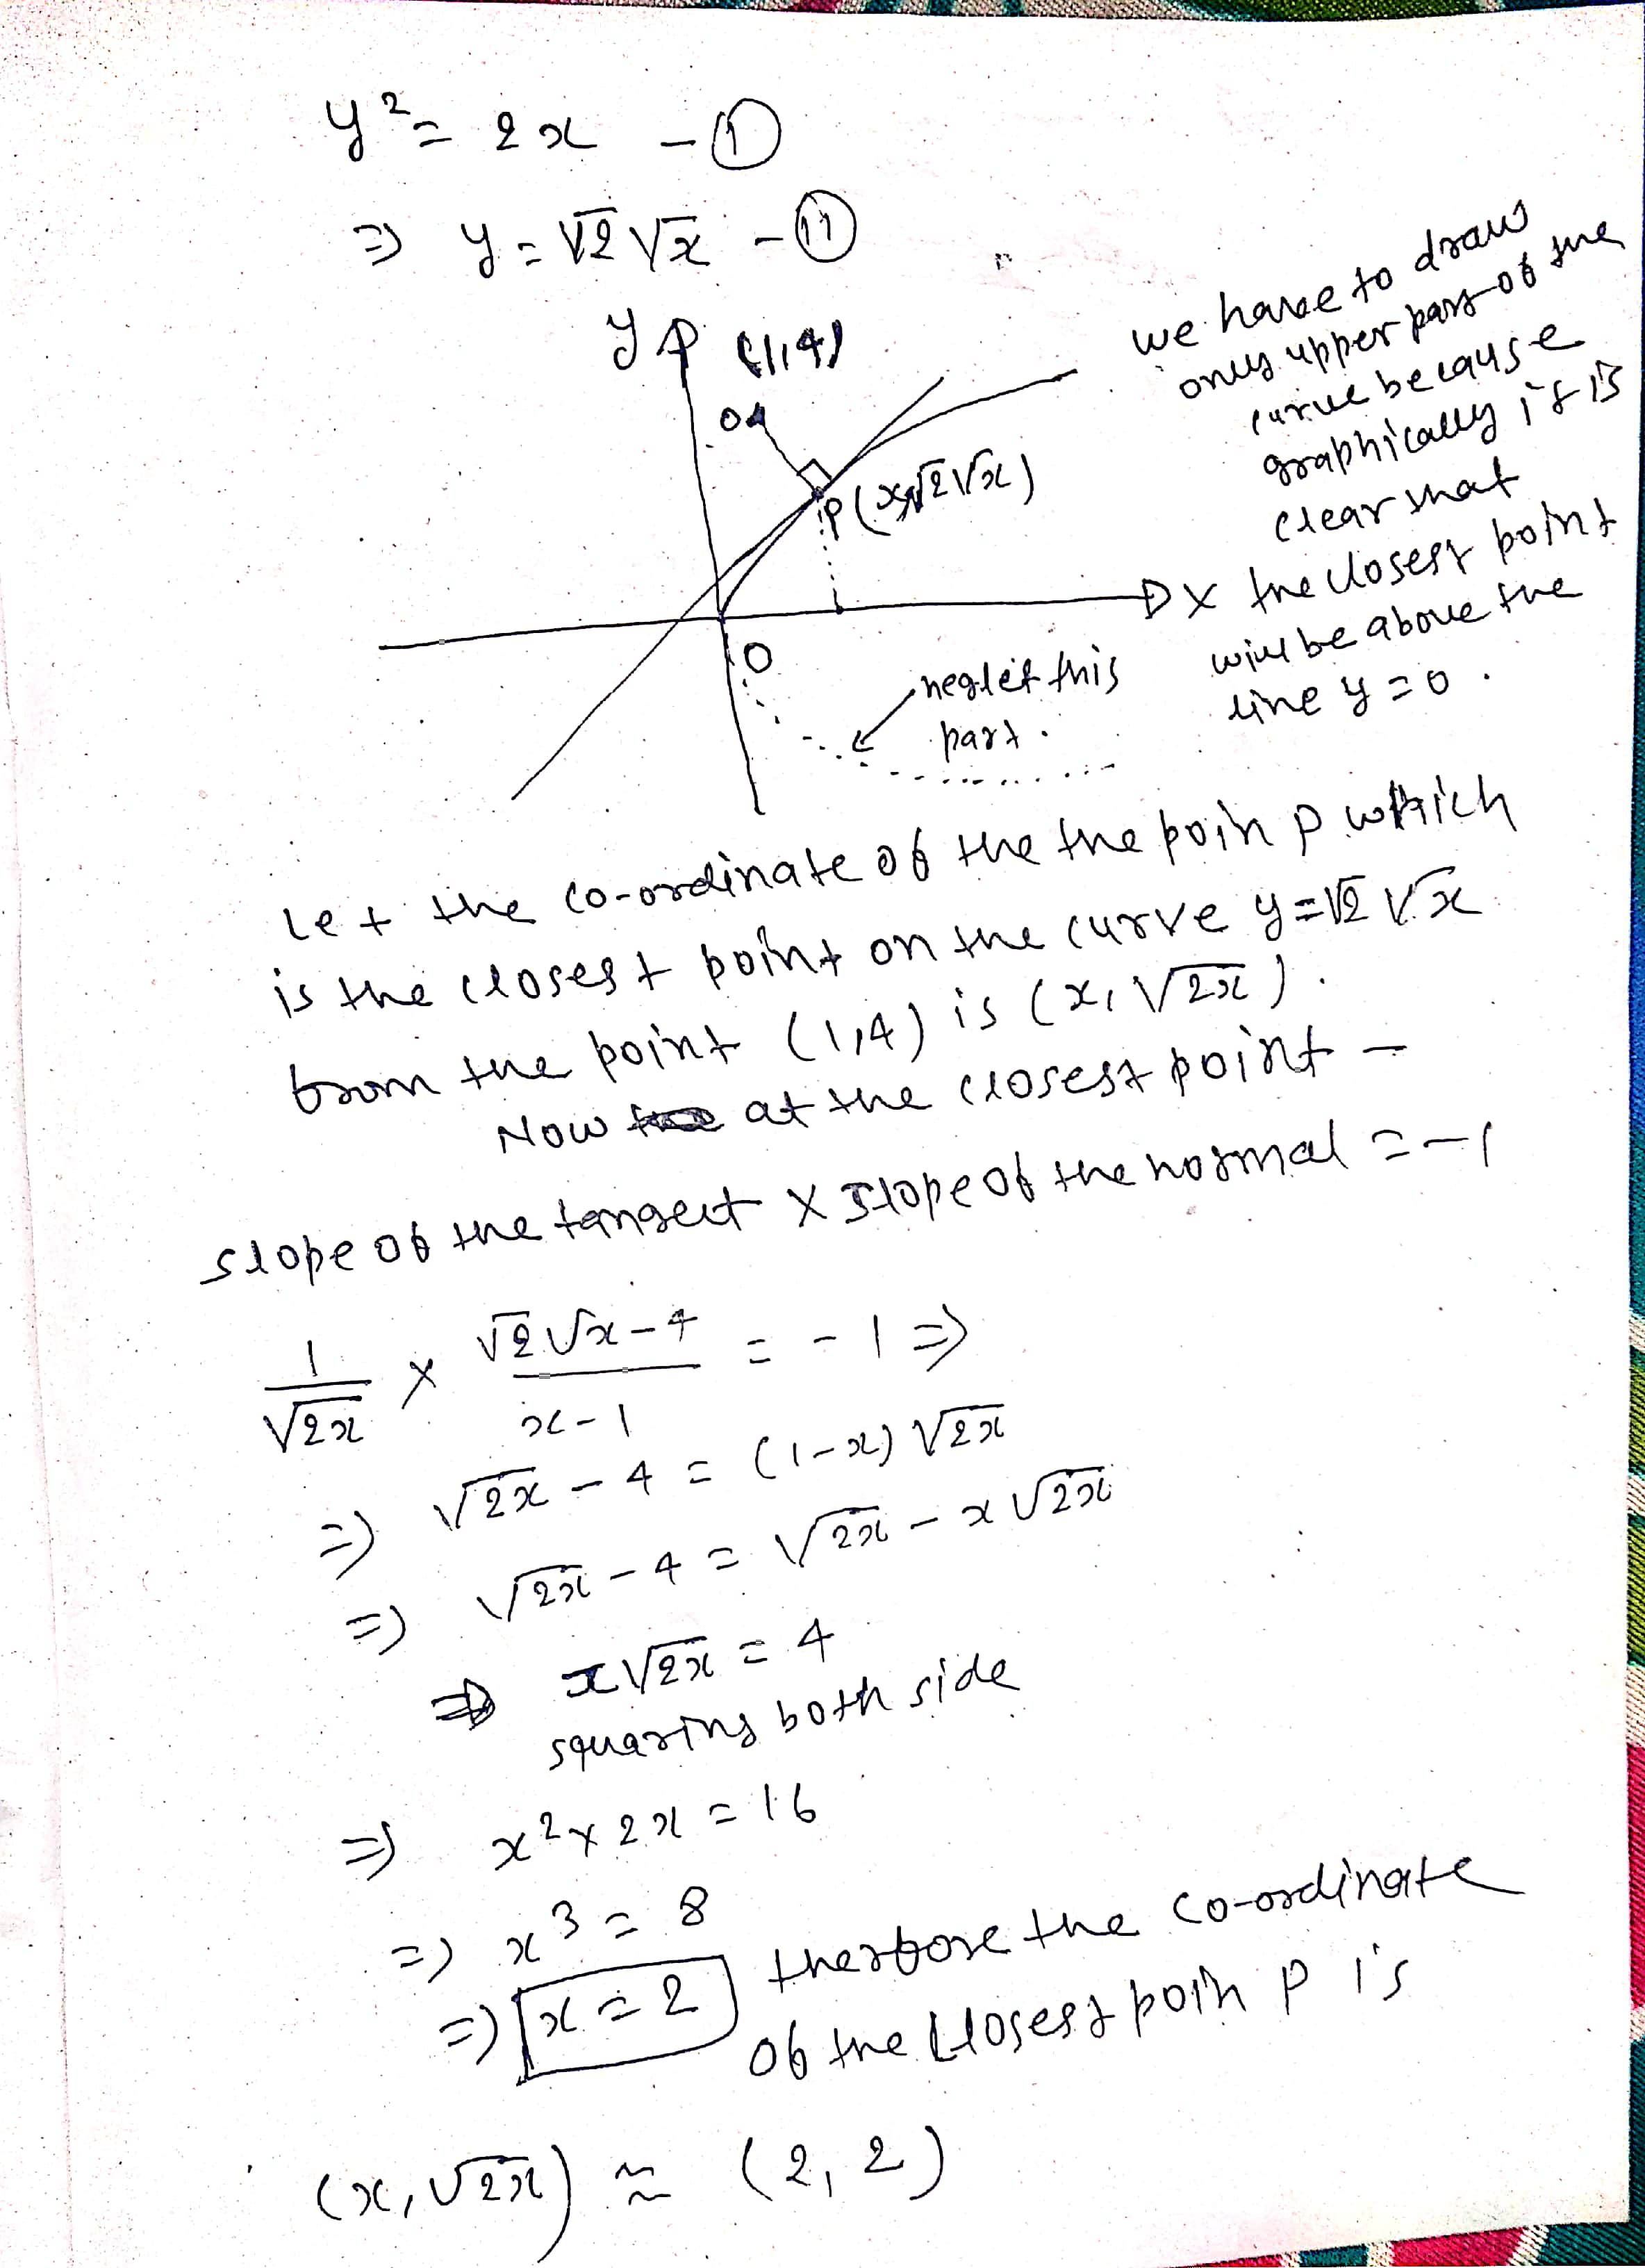 y² = 2x - ①
⇒ y = √2 √x - ⑪
y (1,4)
P(x,√2√x)
X
O
neglet this
part.
we have to draw
only upper part of the
curve because
graphically it is
clear that
the closest point
will be above the
line y = 0.
let the co-ordinate of the the poin P which
is the closest point on the curve y = √2 √x
from the point (1,4) is (x, √2x).
Now at the closest point -
slope of the tangent × slope of the normal = -1
1/√2x × (√2√x - 4)/(x - 1) = -1 ⇒
⇒ √2x - 4 = (1-x) √2x
⇒ √2x - 4 = √2x - x √2x
⇒ x√2x = 4
squaring both side
⇒ x² × 2x = 16
⇒ x³ = 8
⇒ x = 2 therfore the co-ordinate
of the closest poin P is
(x, √2x) ≈ (2, 2)